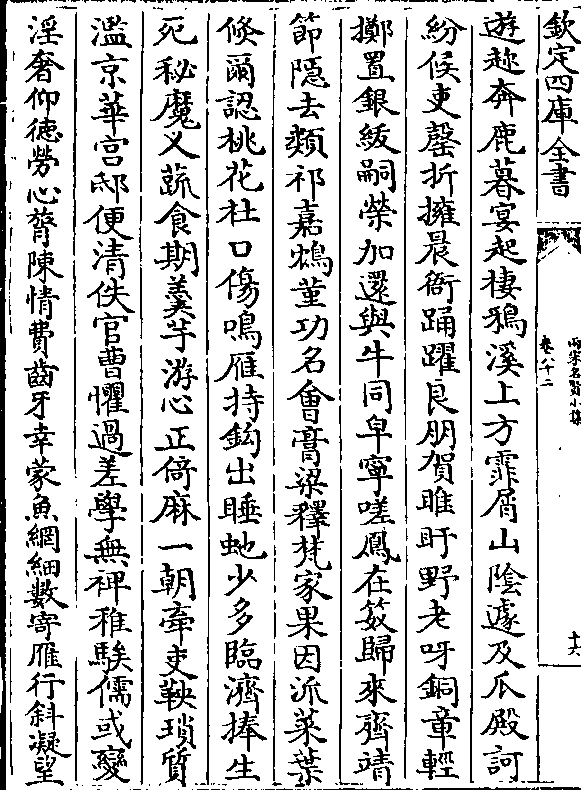 欽定四庫全書
兩宋名賢小集
卷八十二
十六
遊趂奔鹿暮宴起棲鴉溪上方霏屑山陰遽及瓜殿訶
紛候吏罄折擁晨衙踊躍良朋賀睢盱野老呀銅章輕
擲置銀紱嗣榮加還與牛同皁寧嗟鳳在笯歸來齊靖
節隱去類祁嘉鴆堇功名會膏粱釋梵家果因派葉葉
倐爾認桃花杜口傷鳴雁持鈎出睡虵少多臨濟捧生
死秘魔义蔬食期羮芋游心正倚麻一朝牽吏鞅瑣質
濫京華宫邸便清佚官曹懼過差學無裨稚騃儒或變
淫奢仰徳勞心膂陳情費齒牙幸蒙魚網細數寄雁行斜凝望